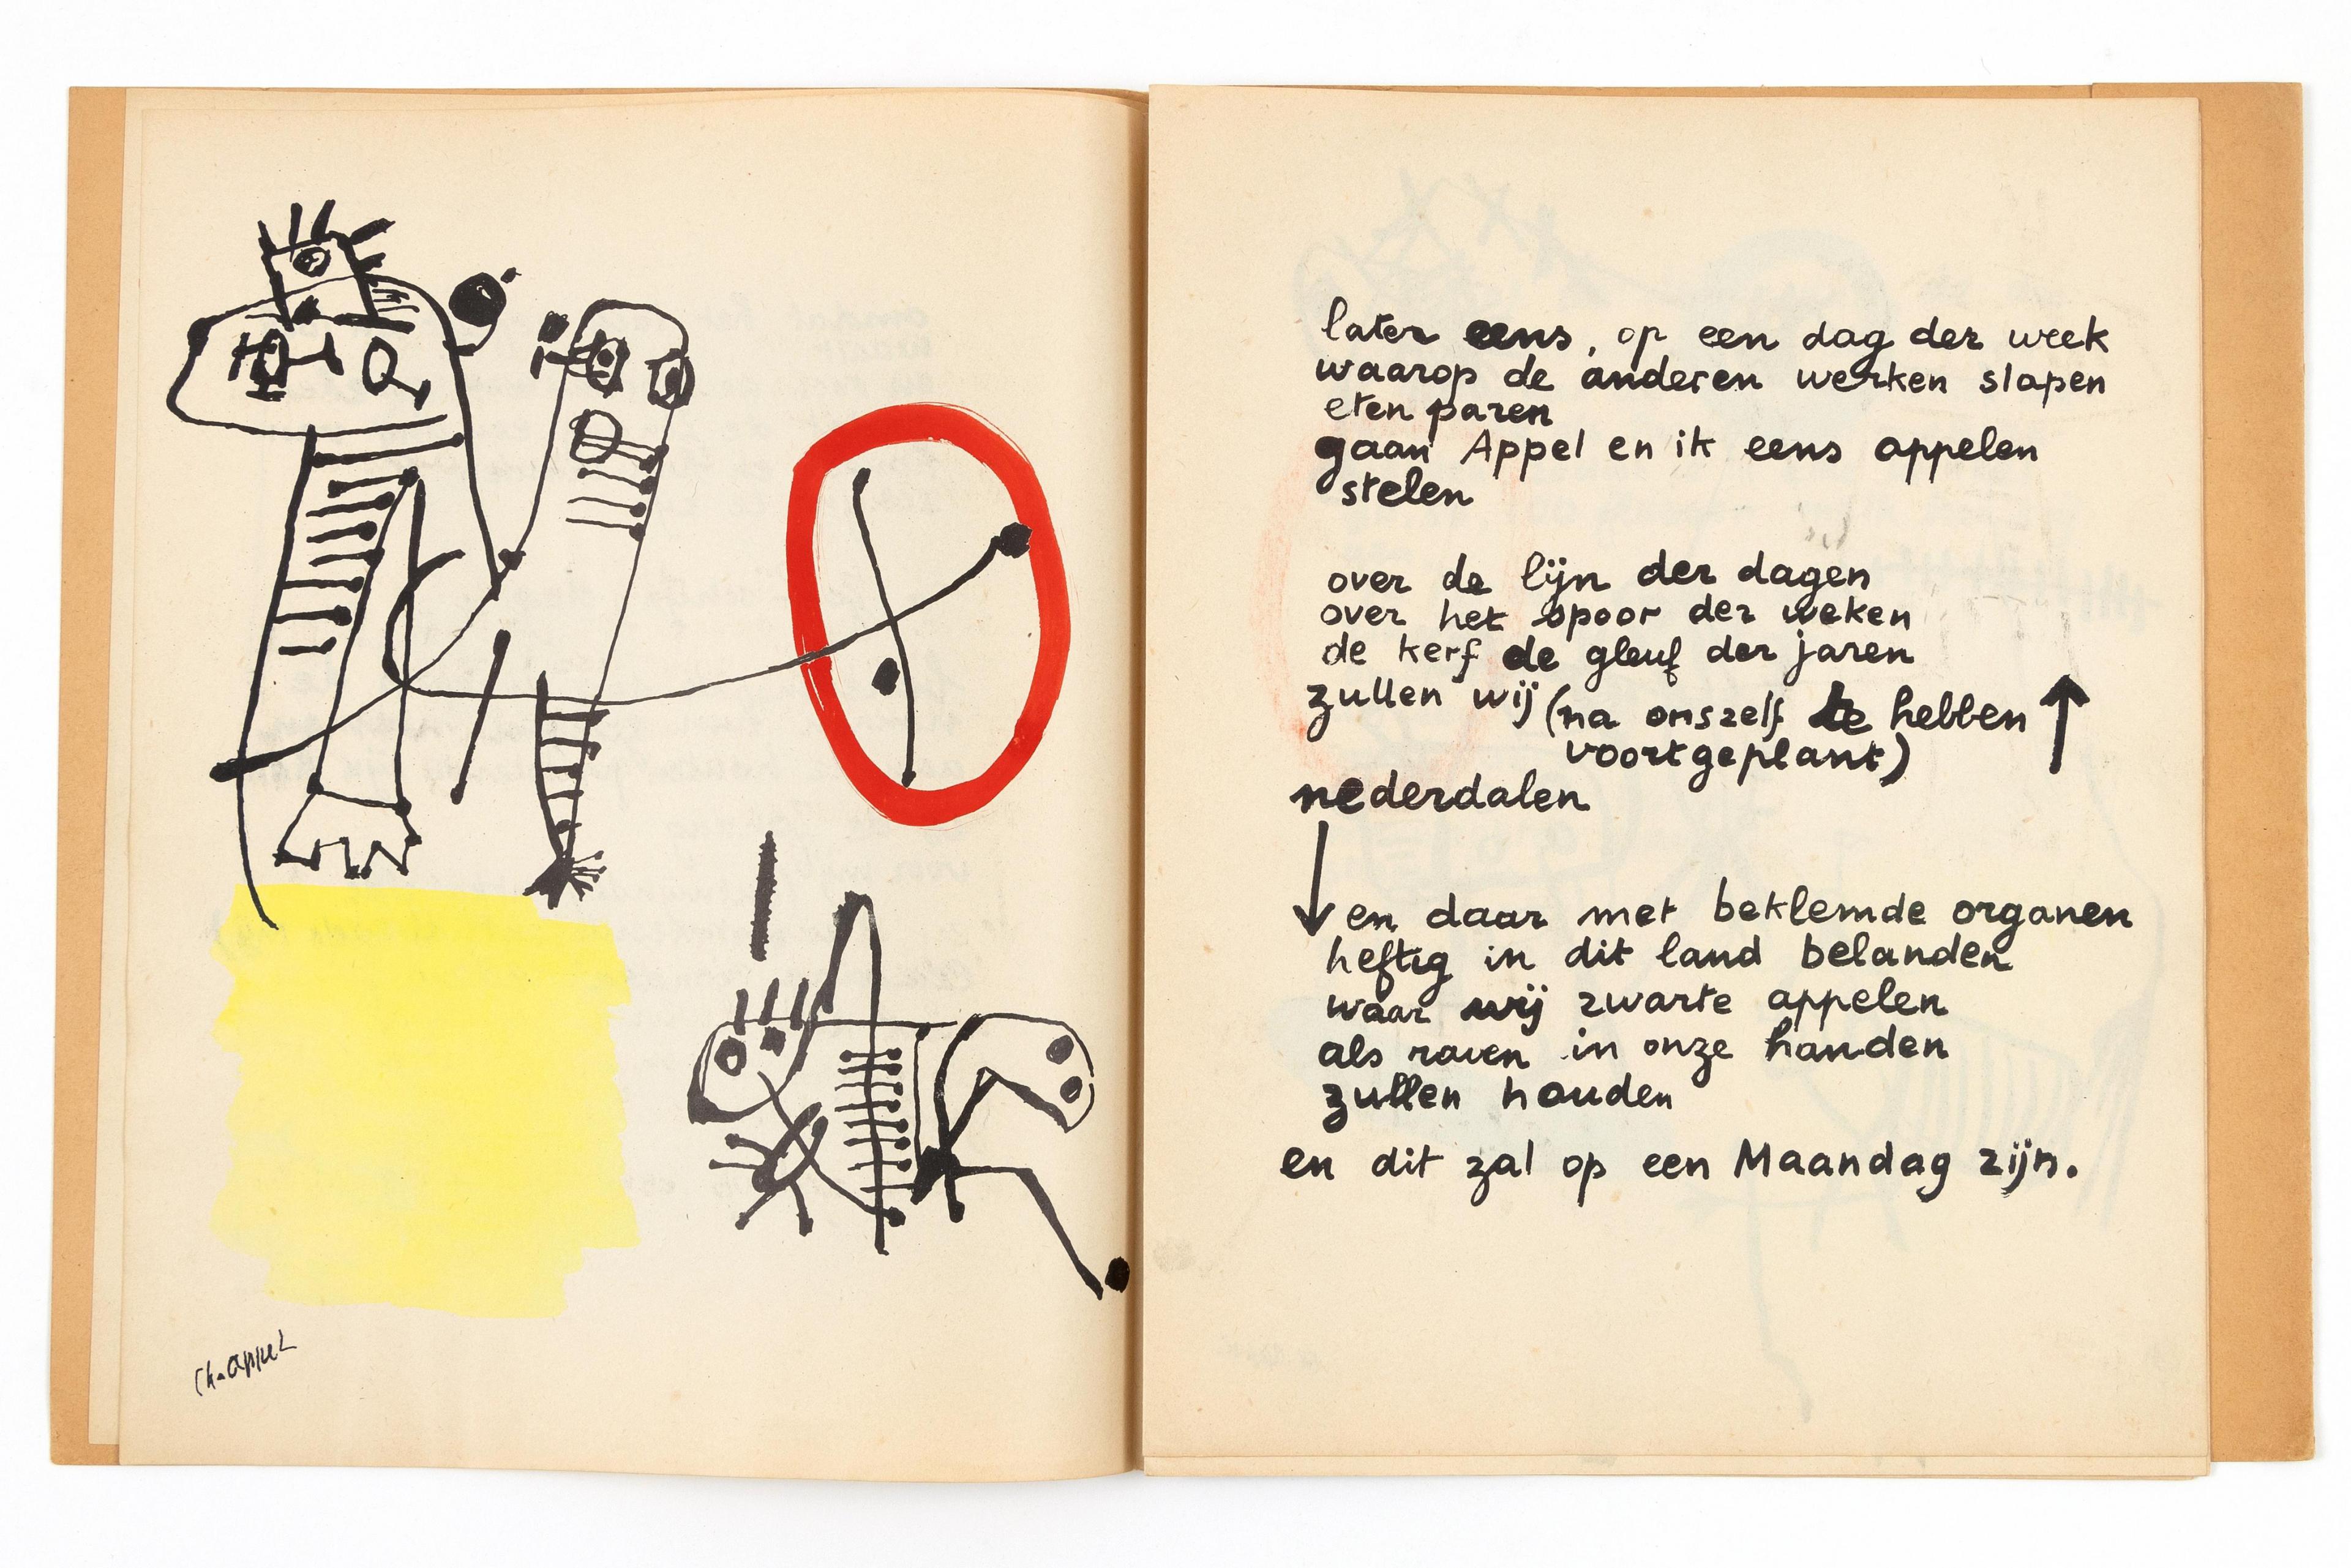 Ck.appel
later eens, op een dag der week
waarop de anderen werken slapen
eten paren
gaan Appel en ik eens appelen
stelen
over de lijn der dagen
over het spoor der weken
de kerf de gleuf der jaren
zullen wij (na onszelf te hebben
voortgeplant)
nederdalen
en daar met beklemde organen
heftig in dit land belanden
waar wij zwarte appelen
als raven in onze handen
zullen houden
en dit zal op een Maandag zijn.